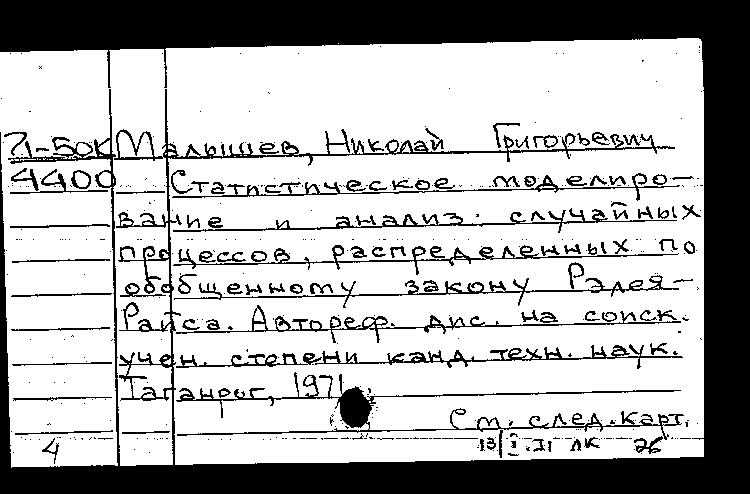 71-50К Малышев, Николай Григорьевич
4400 Статистическое моделиро-
вание и анализ случайных
процессов, распределенных по
обобщенному закону Рэлея-
Райса. Автореф. дис. на соиск.
учен. степени канд. техн. наук.
Таганрог, 1971.
См. след. карт.
4 13/I.71 ЛК 26